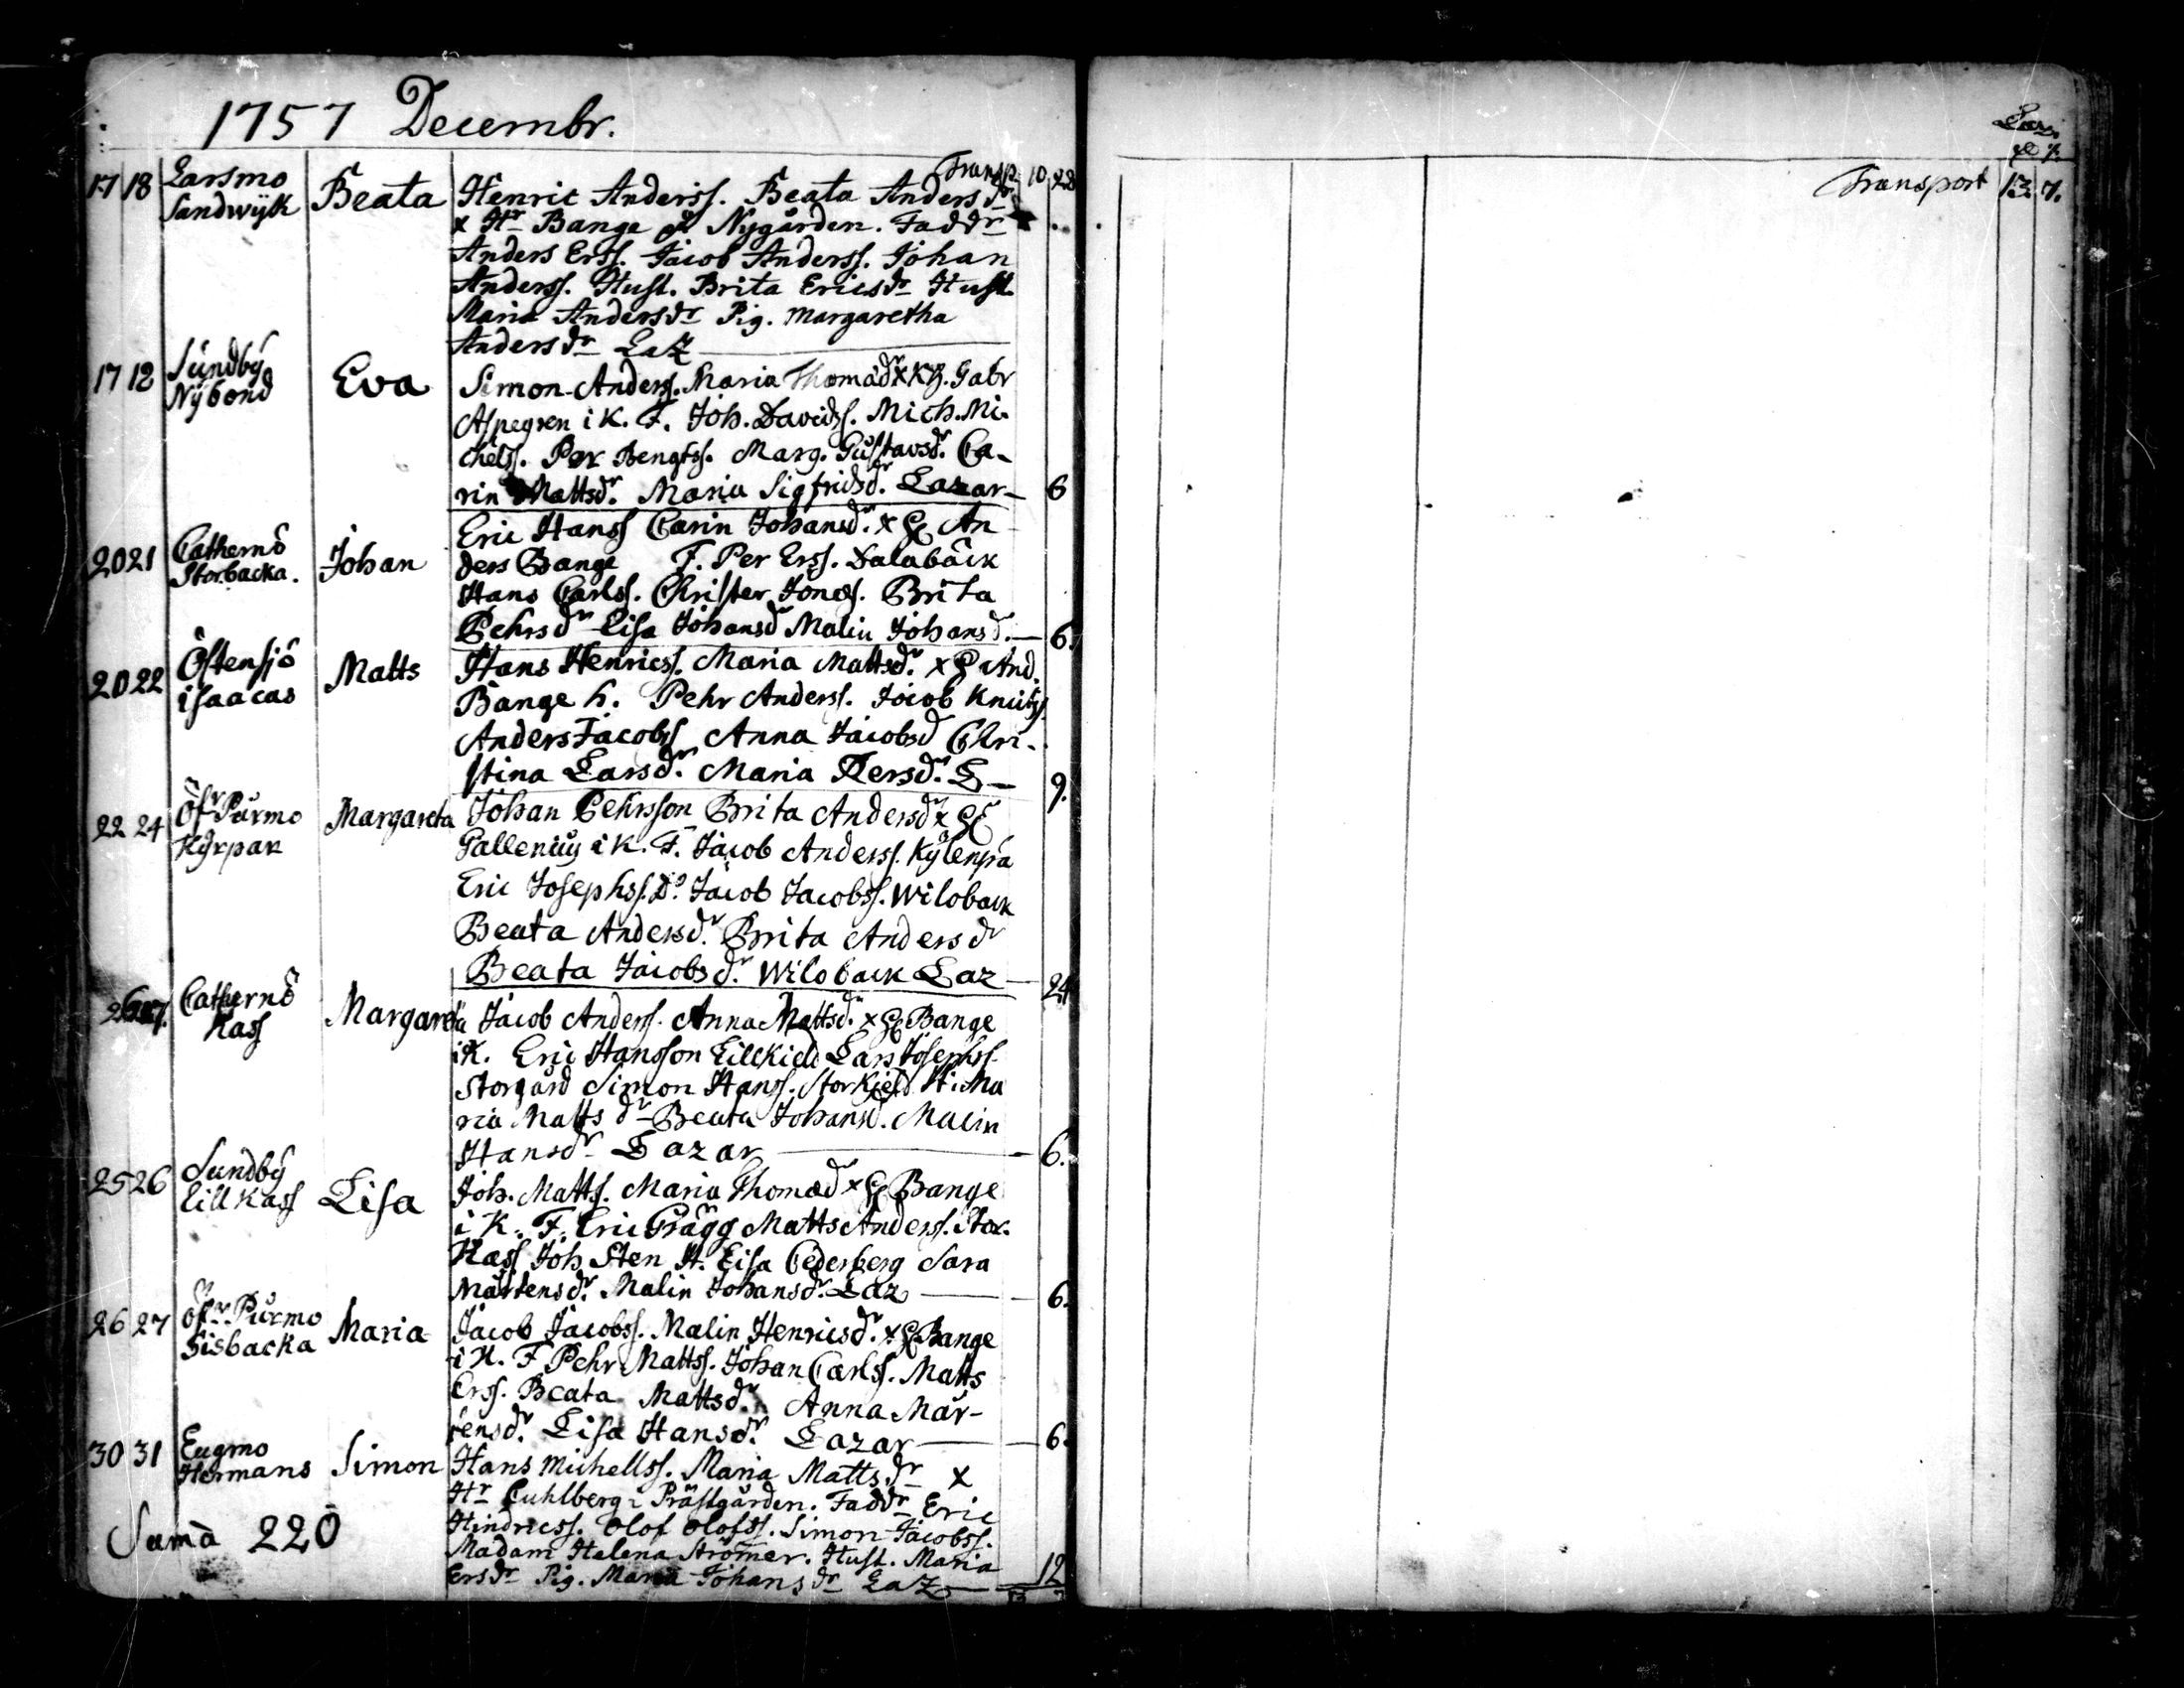 1757 Decembr.
Transp. 10 28
17 18 Larsmo Sandwÿk Beata Henric Anderss. Beata Andersdr
x Hr Bange Nygården. Faddr
Anders Erss. Jacob Anderss. Johan
Anderss. Hust. Brita Ericsdr Hust.
Maria Andersdr Pig. Margaretha
Andersdr Laz
17 18 Sundbÿ Nÿbond Eva Simon Anderss. Maria Thomædr x Kh. Gabr
Aspegren i K. F. Joh. Davidss. Mich. Mi-
chelss. Per Bengtss. Marg. Gustavsdr. Ca-
rin Mattsdr. Maria Sigfridsdr. Lazar — 6
20 21 Cathernö Storbacka. Johan Eric Hanss Carin Johansdr. x An-
ders Bange F. Per Erss. Dalabäck
Hans Carlss. Christer Jonæs. Brita
Pehrsdr Lisa Johansd Malin Johansd. — 6.
20 22 Östensjö isaacas Matts Hans Henricss. Maria Mattsdr. x And.
Bange h. Pehr Anderss. Jacob Knutss.
Anders Jacobss Anna Jacobsd Chri-
stina Larsdr. Maria Persdr. L — 9.
22 24 Öfr Purmo Kyrpar Margareta Johan Pehrsson Brita Andersdr x
Gallenius i K. F. Jacob Anderss. Kÿlenpä
Eric Josephss. Do. Jacob Jacobss. Wiloback
Beata Andersdr. Brita Andersdr
Beata Jacobsdr. Wiloback Laz — 24
27. Cathernö Kass Margareta Jacob Anderss. Anna Mattsdr. x Bange
i K. Eric Hansson Lillkield Lars Josephss.
Storgård Simon Hanss. Storkield H. Ma
ria Mattsdr Beata Johansd. Malin
Hansdr Lazar — 6.
25 26 Sundbÿ Lill Kass Lisa Joh. Matts. Maria Thomædr x Bange
i K. F. Eric Prägg Matts Anderss. Stor.
Kass Joh Sten H. Lisa Cederberg Sara
Mårtensdr. Malin Johansdr. Laz — 6.
26 27 Öfr Purmo Sisbacka Maria Jacob Jacobss. Malin Henricsdr. x Bange
i K. F Pehr Mattss. Johan Carlss. Matts
Erss. Beata Mattsdr. Anna Mår-
tensdr. Lisa Hansdr. Lazar — 6.
30 31 Eugmo Hermans Simon Hans Michellss. Maria Mattsdr x
Hr Cuhlberg i Prästgården. Faddr Eric
Hindricss. Olof Olofss. Simon Jacobss.
Madam Helena Strömer. Hust. Maria
Ersdr Pig. Maria Johansdr Laz — 12
Suma 220
Laz.
Transport 13 7.